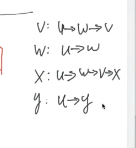 V: u→w→v
W: u→w
X: u→w→v→x
y: u→y.